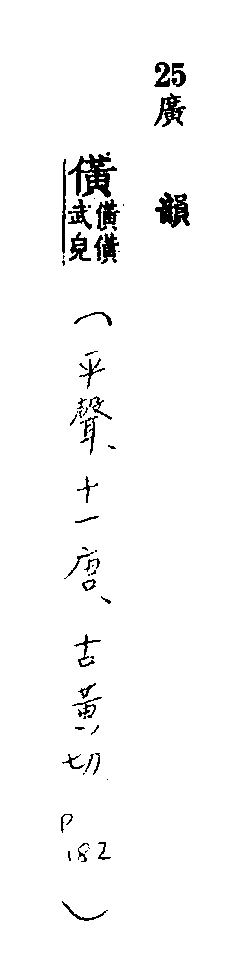 25廣韻
僙僙僙武皃
（平聲、十一唐、古黃切 P182）